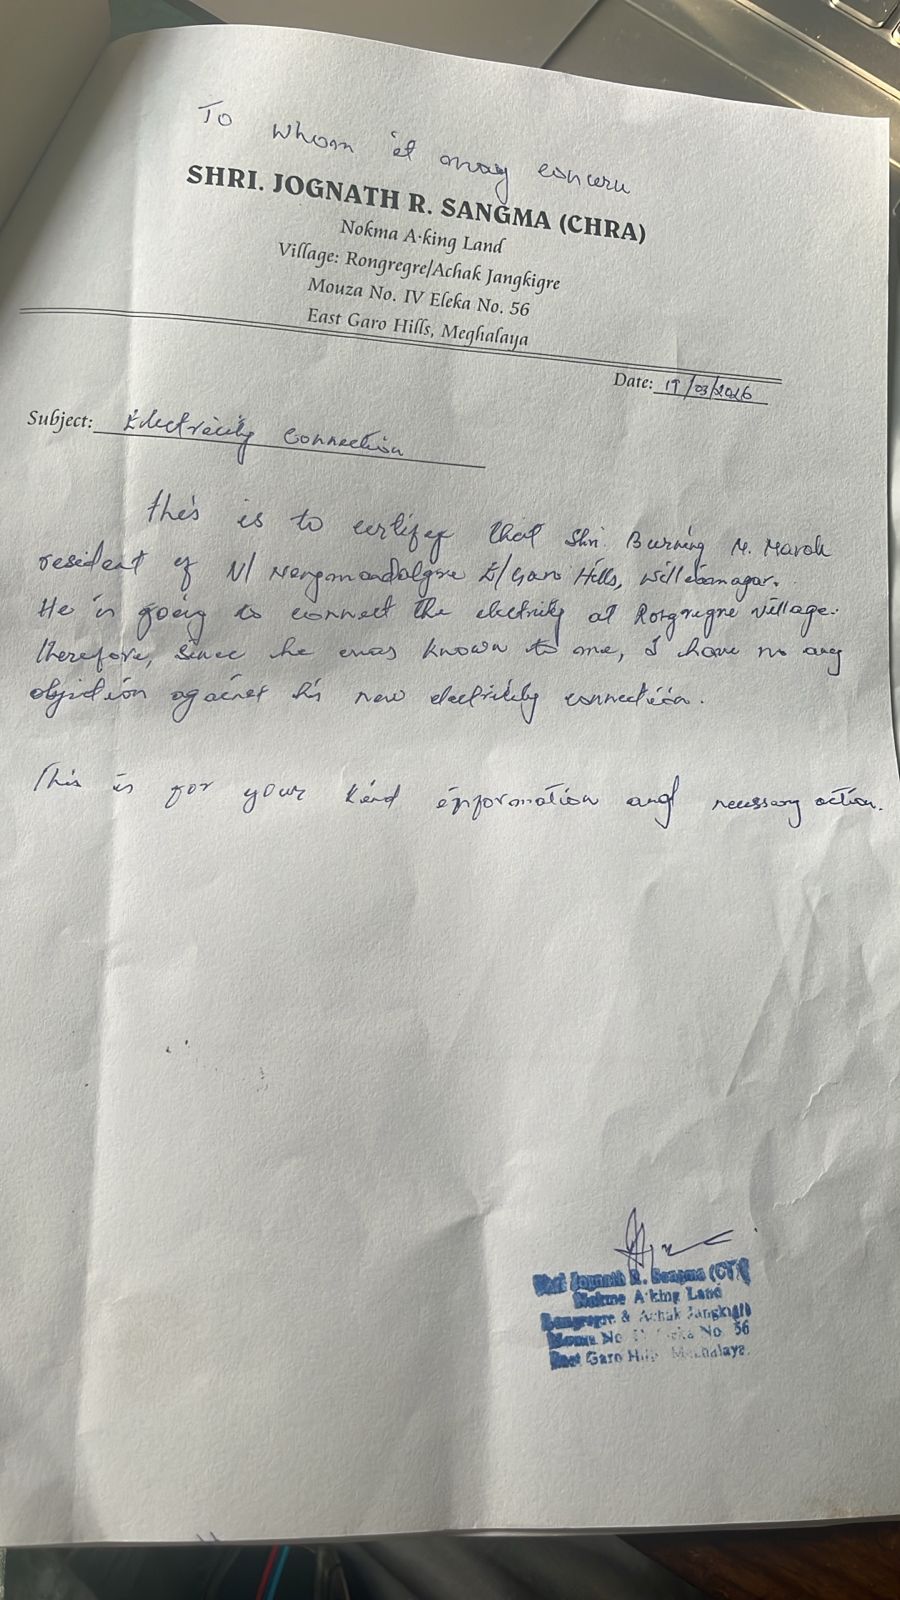 To whom it may concern
SHRI. JOGNATH R. SANGMA (CHRA)
Nokma A·king Land
Village: Rongregre/Achak Jangkigre
Mouza No. IV Eleka No. 56
East Garo Hills, Meghalaya
Date: 19/03/2026
Subject: Electricity Connection
This is to certify that Shri. Burning M. Marak
resident of N/ E/Garo Hills, Williamnagar.
He is going to connect the electricity at Rongregre village.
therefore, since he was known to me, I have no any
objection against his new electricity connection.
This is for your kind information and necessary action.
Shri Jognath R. Sangma
Nokma A·king Land
Rongregre & Achak Jangkigre
Mouza No. Eleka No. 56
East Garo Hills Meghalaya.